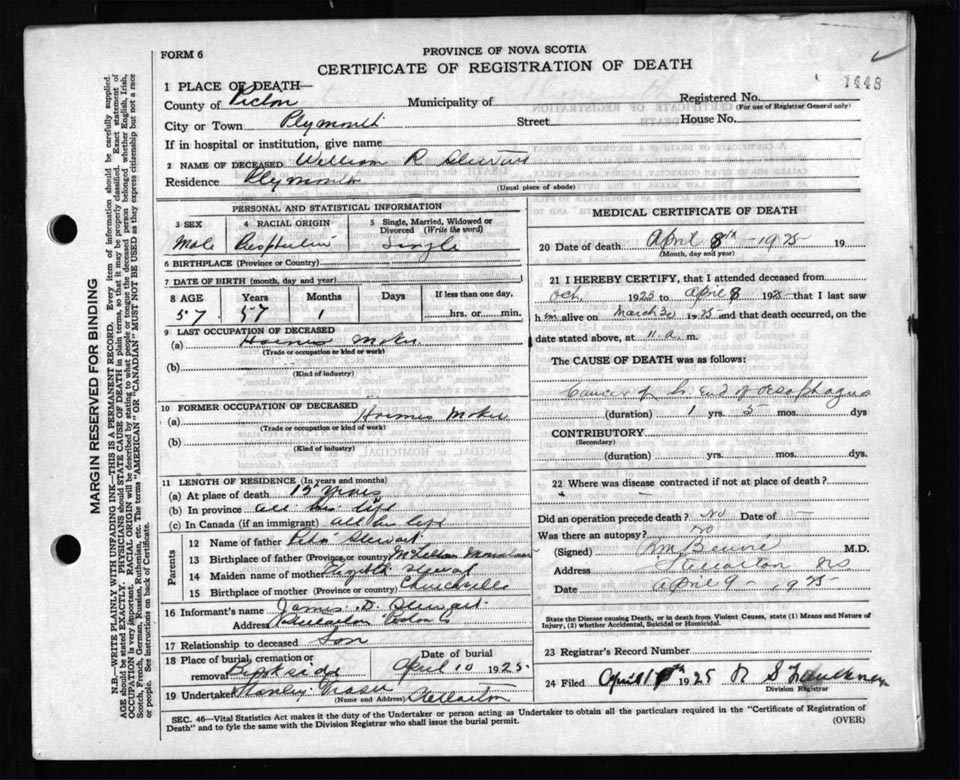 FORM 6
PROVINCE OF NOVA SCOTIA
CERTIFICATE OF REGISTRATION OF DEATH
1448
1 PLACE OF DEATH—
County of Pictou Municipality of Registered No.
(For use of Registrar General only)
City or Town Plymouth Street House No.
If in hospital or institution, give name
2 NAME OF DECEASED William R
Residence Plymouth
(Usual place of abode)
PERSONAL AND STATISTICAL INFORMATION
3 SEX 4 RACIAL ORIGIN 5 Single, Married, Widowed or Divorced (Write the word)
Male Single
6 BIRTHPLACE (Province or Country)
7 DATE OF BIRTH (month, day and year)
8 AGE Years Months Days If less than one day,
57 57 1 hrs. or min.
9 LAST OCCUPATION OF DECEASED
(a)
(Trade or occupation or kind of work)
(b)
(Kind of industry)
10 FORMER OCCUPATION OF DECEASED
(a)
(Trade or occupation or kind of work)
(b)
(Kind of industry)
11 LENGTH OF RESIDENCE (In years and months)
(a) At place of death 15 years
(b) In province all his life
(c) In Canada (if an immigrant) all his life
Parents
12 Name of father Stewart
13 Birthplace of father (Province or country)
14 Maiden name of mother
15 Birthplace of mother (Province or country) Churchville
16 Informant's name James D. Stewart
Address Stellarton Pictou Co
17 Relationship to deceased Son
18 Place of burial, cremation or removal Date of burial
April 10 1925
19 Undertaker Stanley Fraser Stellarton
(Name and Address)
MEDICAL CERTIFICATE OF DEATH
20 Date of death April 8th - 1925 19
(Month, day and year)
21 I HEREBY CERTIFY, that I attended deceased from
Oct. 1923 to April 8 1925 that I last saw
him alive on March 1925 and that death occurred, on
date stated above, at 11 a. m.
The CAUSE OF DEATH was as follows:
Cancer of end of oesophagus
(duration) 1 yrs. 5 mos. dys
CONTRIBUTORY
(Secondary)
(duration) yrs. mos. dys.
22 Where was disease contracted if not at place of death?
Did an operation precede death? No Date of —
Was there an autopsy? No
(Signed) M.D.
Address Stellarton NS
Date April 9 - 1925
State the Disease causing Death, or in death from Violent Causes, state (1) Means and Nature of
Injury, (2) whether Accidental, Suicidal or Homicidal.
23 Registrar's Record Number
24 Filed April 1925 R S Faulkner
Division Registrar
SEC. 46—Vital Statistics Act makes it the duty of the Undertaker or person acting as Undertaker to obtain all the particulars required in the "Certificate of Registration of
Death" and to fyle the same with the Division Registrar who shall issue the burial permit.
(OVER)
MARGIN RESERVED FOR BINDING
N.B.—WRITE PLAINLY WITH UNFADING INK—THIS IS A PERMANENT RECORD. Every item of information should be carefully supplied.
AGE should be stated EXACTLY. PHYSICIANS should STATE CAUSE OF DEATH in plain terms, so that it may be properly classified. Exact statement of
OCCUPATION is very important. RACIAL ORIGIN will be described by stating to what people or tongue the deceased person belonged whether English, Irish,
Scotch, French, German, Russian, Ruthenian, etc. The terms "AMERICAN" OR "CANADIAN" MUST NOT BE USED as they express citizenship but not a race
or people. See instructions on back of Certificate.